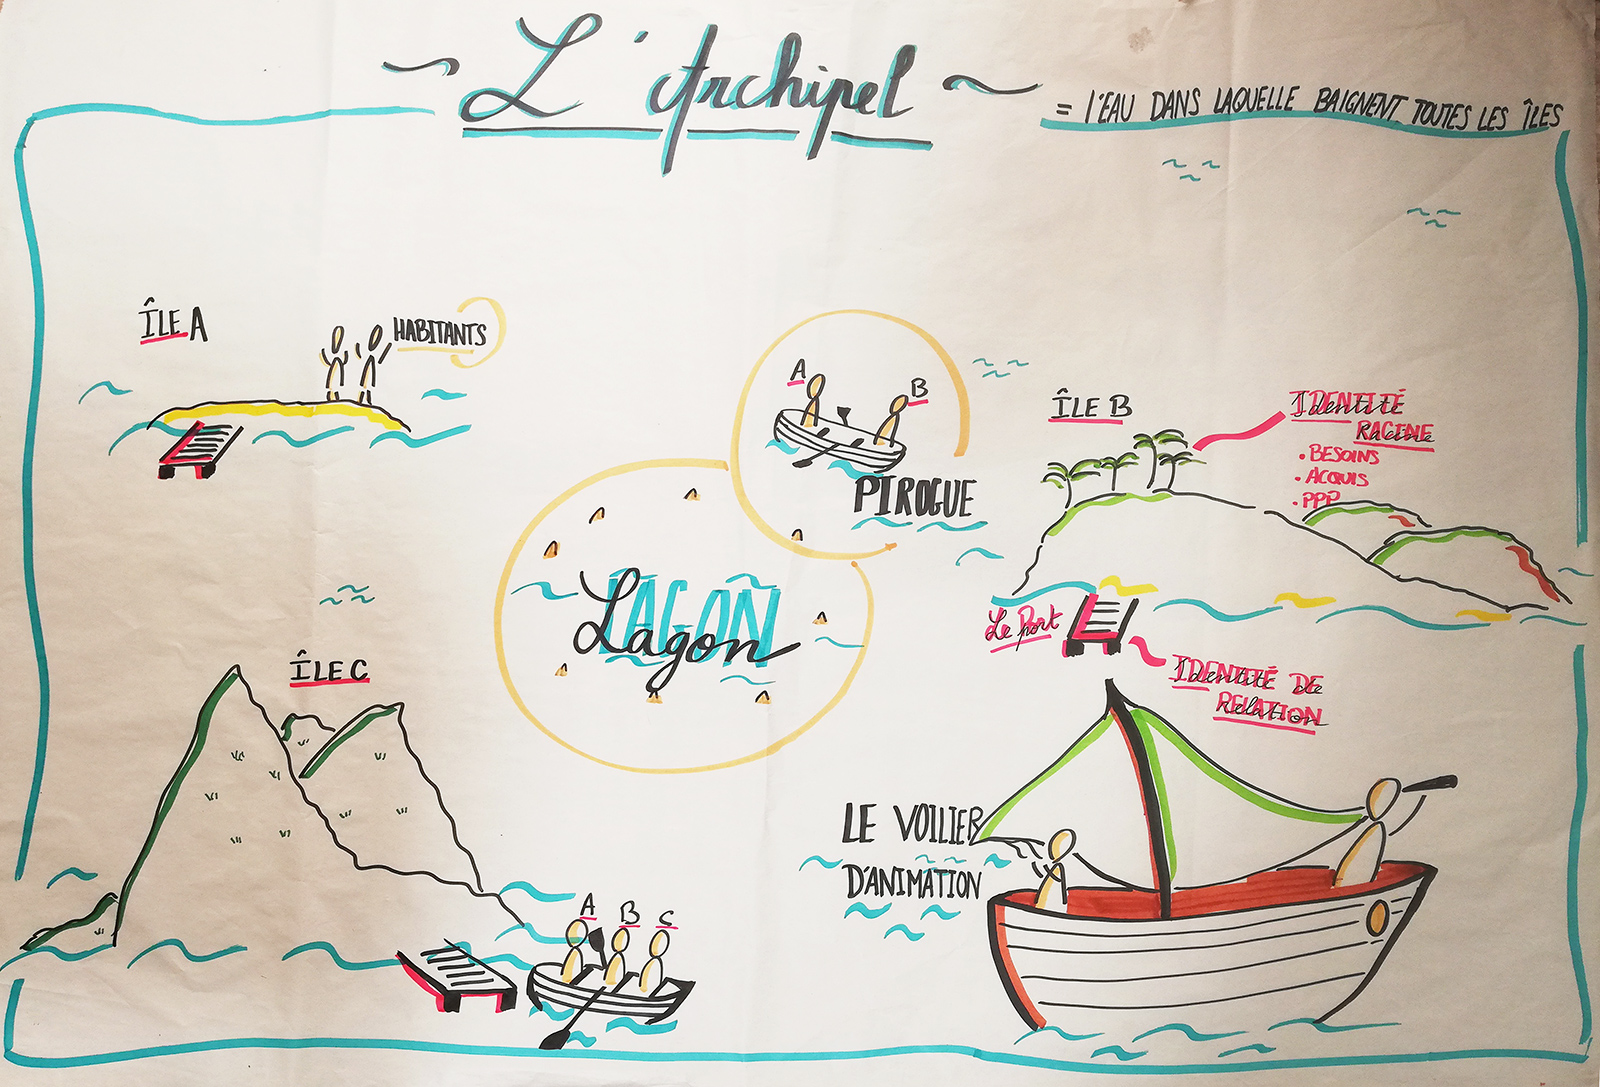 L'Archipel
= l'EAU DANS LAQUELLE BAIGNENT TOUTES LES ÎLES
ÎLE A
HABITANTS
A
B
PIROGUE
ÎLE B
IDENTITÉ
RACINE
• BESOINS
• ACQUIS
• PPP
LAGON
Lagon
Le Port
IDENTITÉ DE
RELATION
ÎLE C
LE VOILIER
D'ANIMATION
A B C